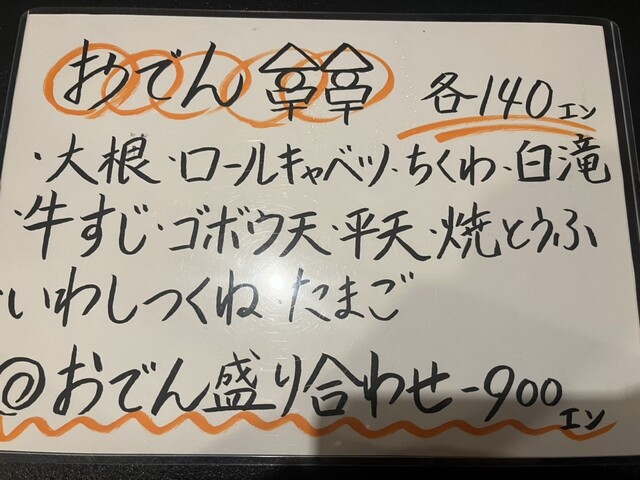 おでん 各140エン
・大根・ロールキャベツ・ちくわ・白滝
・牛すじ・ゴボウ天・平天・焼とうふ
・いわしつくね・たまご
@おでん盛り合わせ-900エン